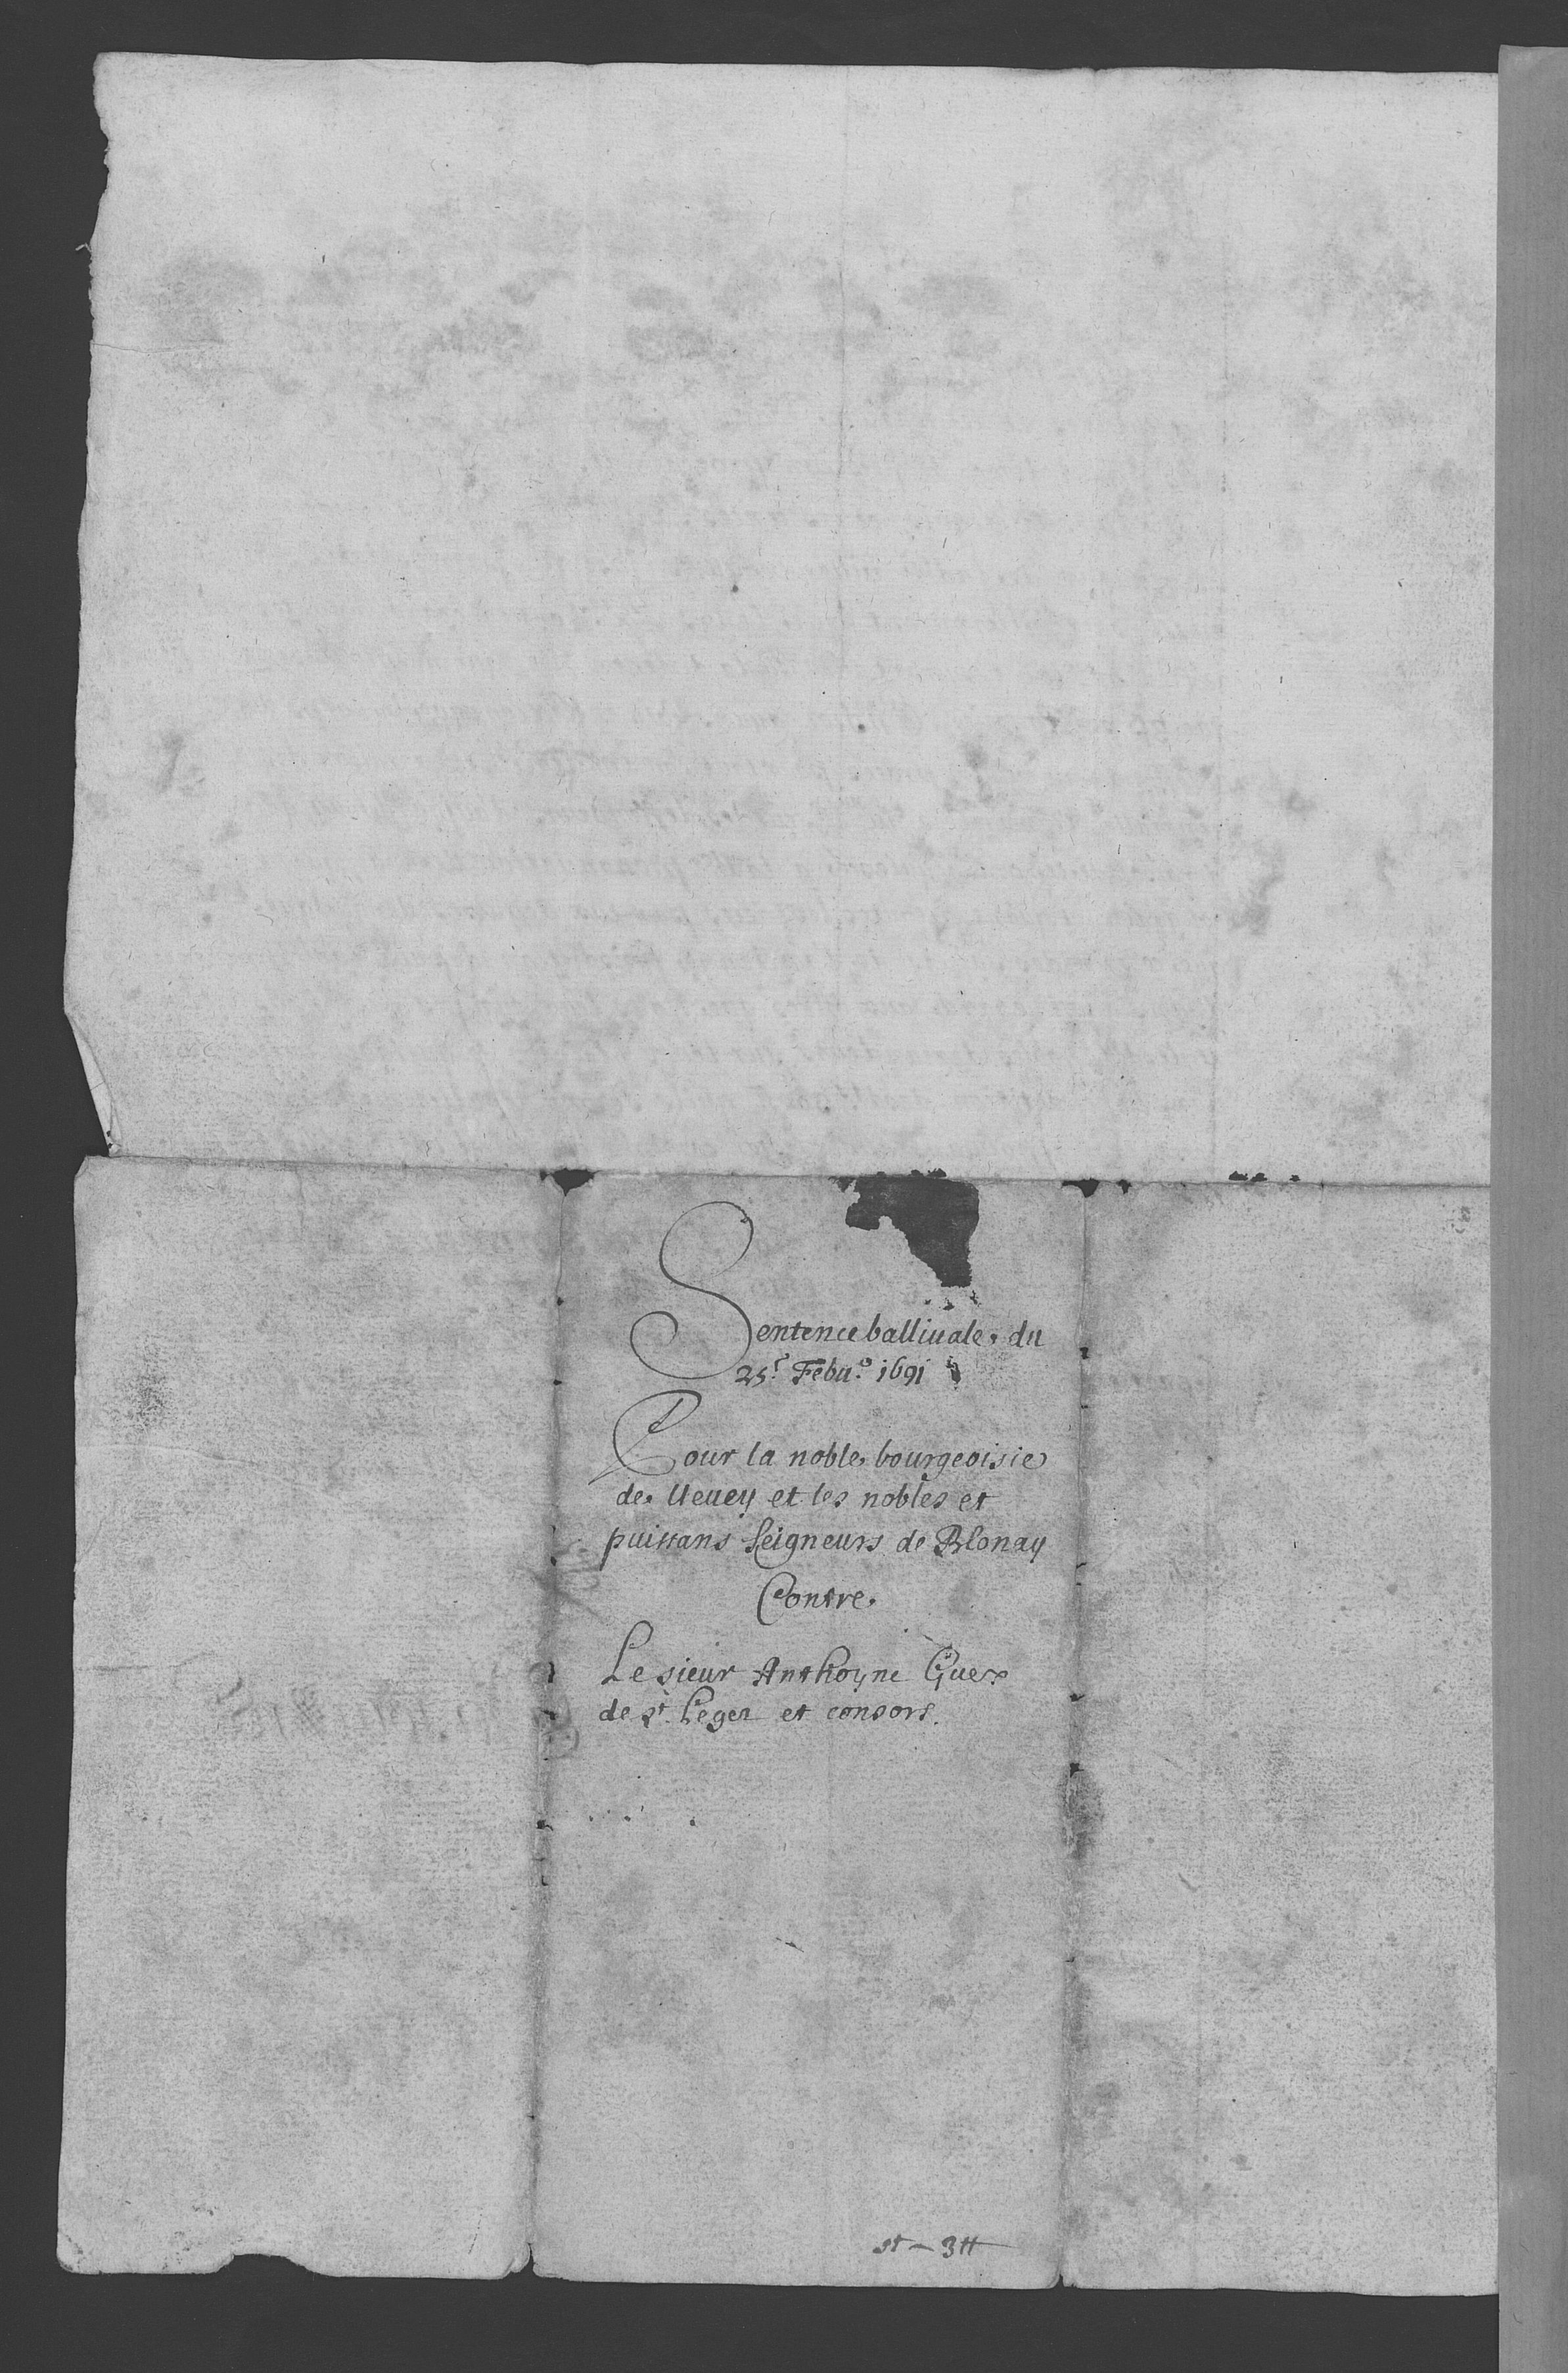 Sentence balliuale du
25.e Febu.o 1691
Pour la noble bourgeoisie
de Ueuey et les nobles et
puissans Seigneurs de Blonay
Contre
Le sieur Anthoyne Guex
de St. Leger et consors.
st – 3 tt